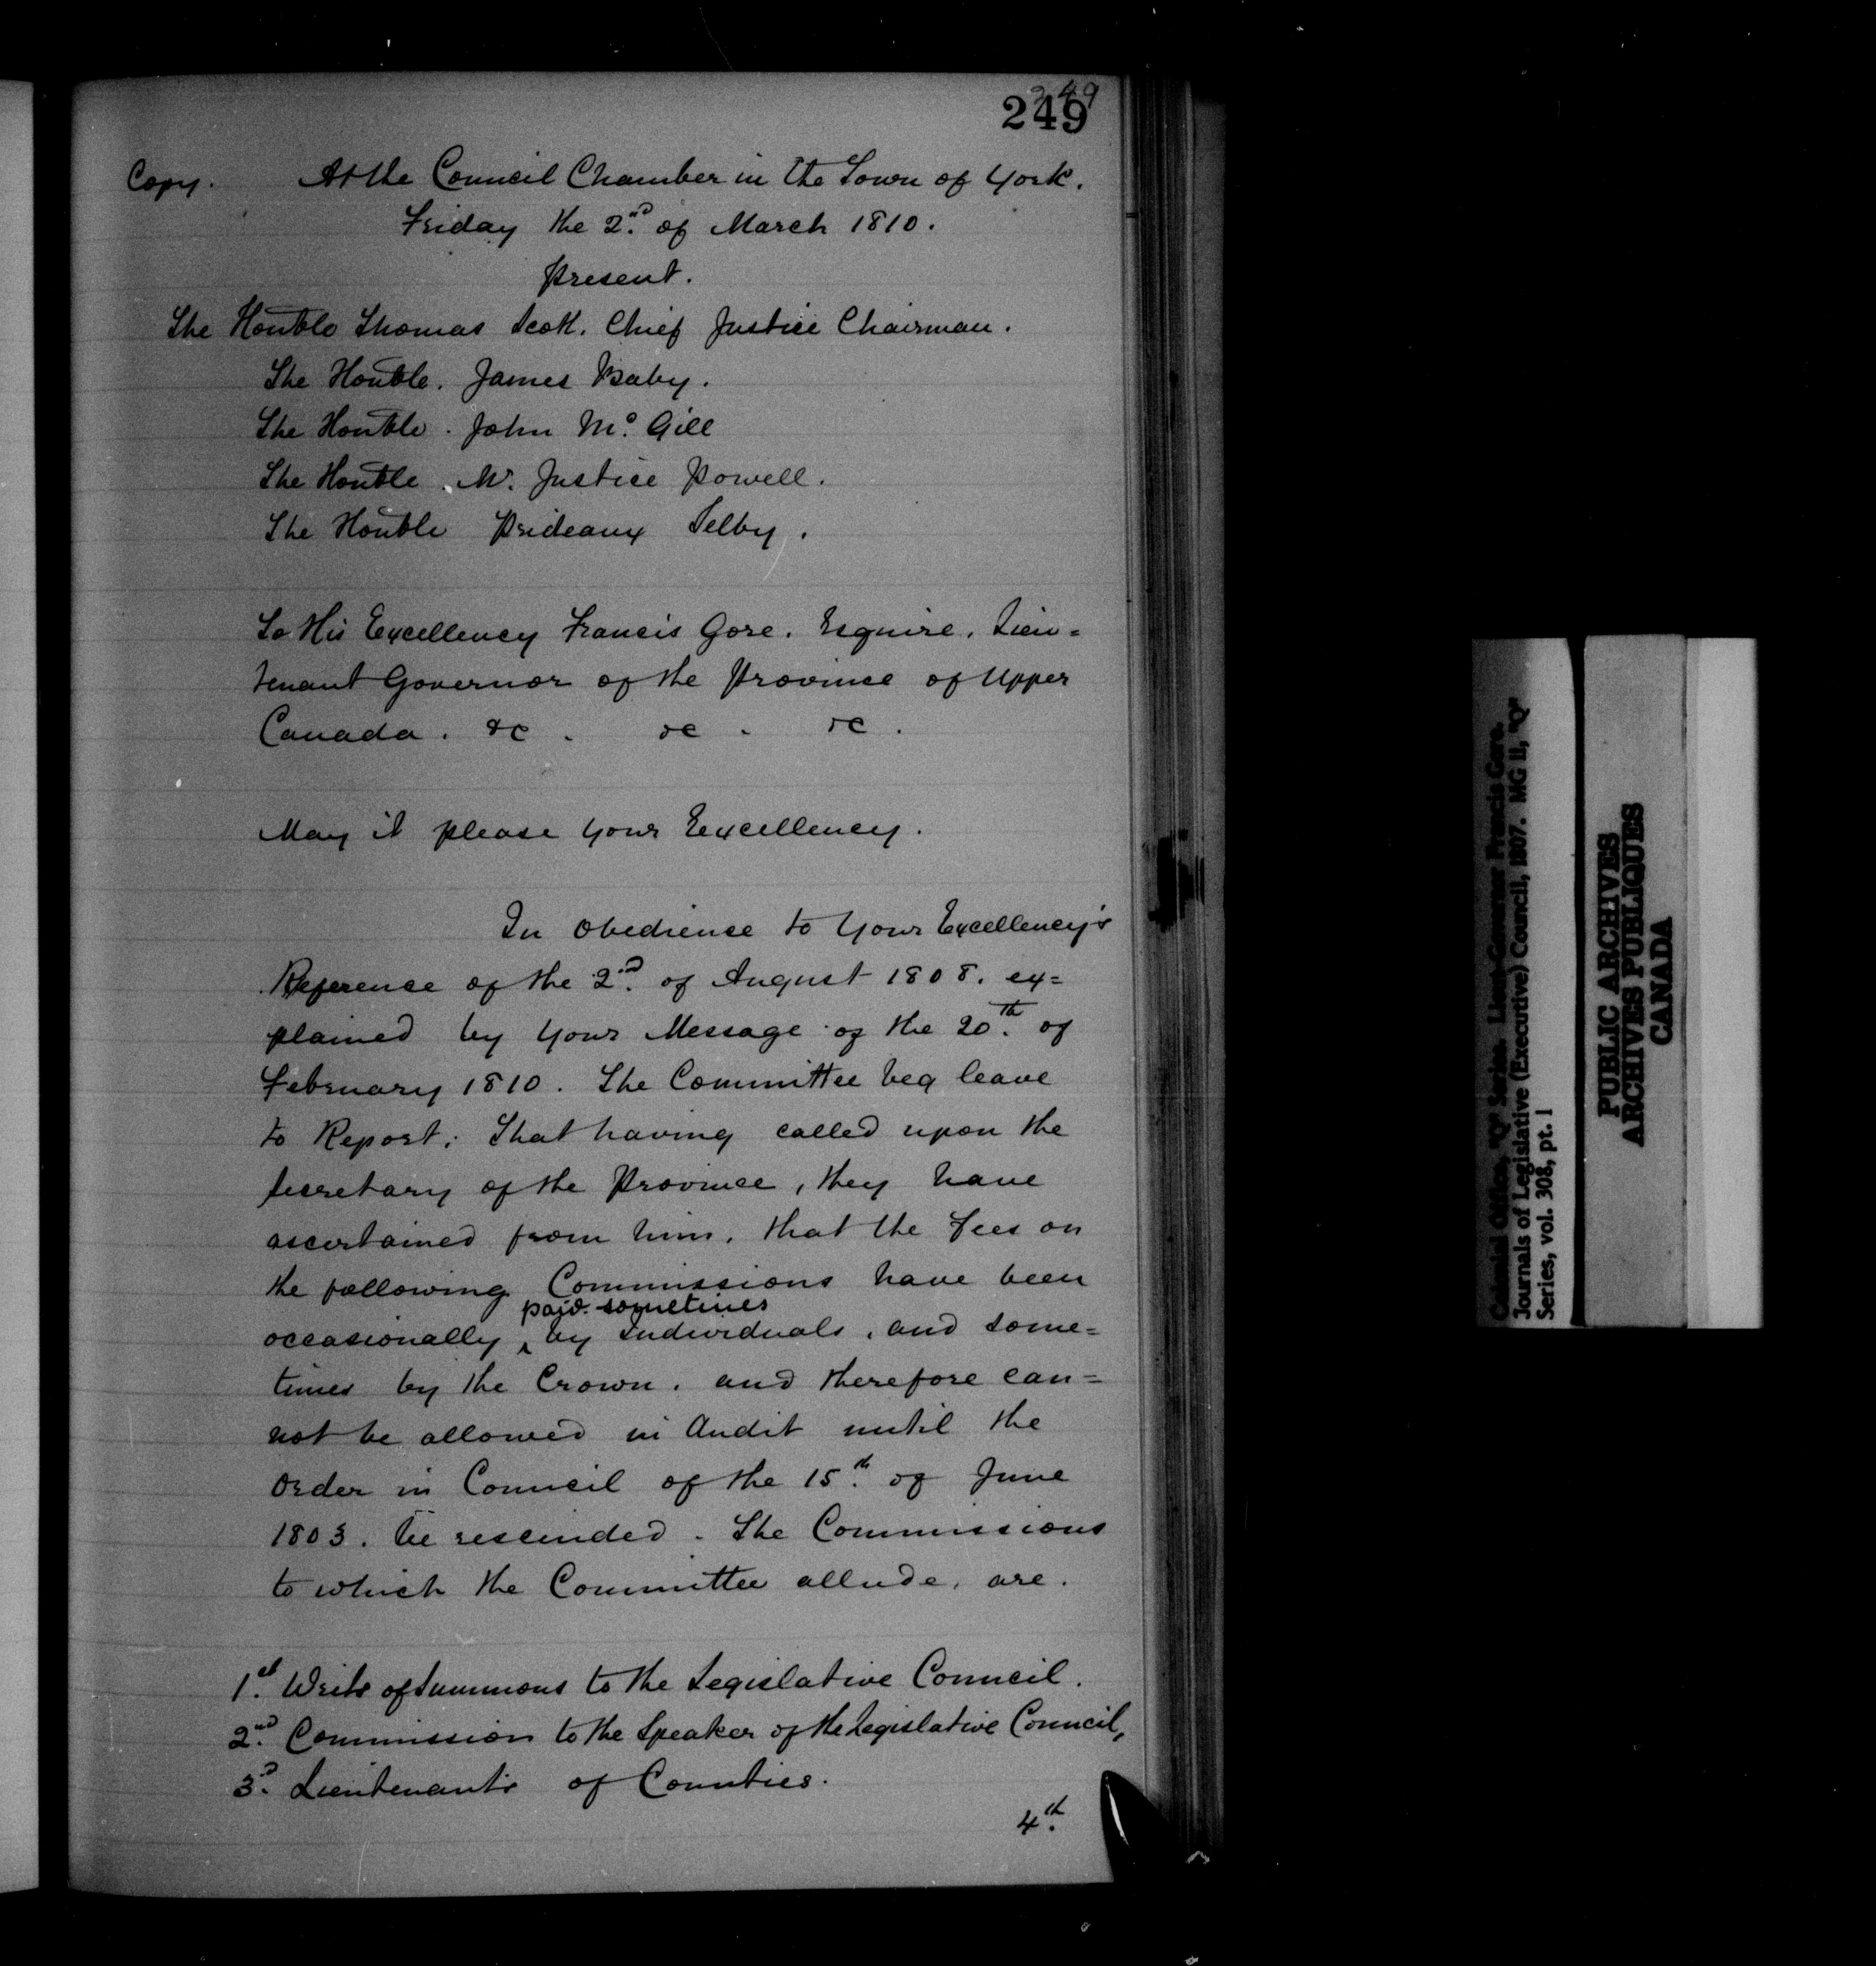 249
249
Copy. At the Council Chamber in the Town of York.
Friday the 2nd of March 1810.
Present.
The Honble Thomas Scott. Chief Justice Chairman.
The Honble. James Baby.
The Honble. John Mc Gill
The Honble. Mr. Justice Powell.
The Honble Prideaux Selby.
To His Excellency Francis Gore. Esquire. Lieu=
tenant Governor of the Province of Upper
Canada. &c. &c. &c.
May it please Your Excellency.
In obedience to Your Excellency's
Reference of the 2nd of August 1808. ex=
plained by Your Message of the 20th of
February 1810. The Committee beg leave
to Report: That having called upon the
Secretary of the Province, they have
ascertained from him, that the Fees on
the following Commissions have been
paid sometimes
occasionally ‸ by Individuals, and some=
times by the Crown. and therefore can=
not be allowed in Audit until the
Order in Council of the 15th of June
1803. be rescinded. The Commissions
to which the Committee allude, are.
1st Writs of Summons to the Legislative Council.
2nd Commission to the Speaker of the Legislative Council,
3d Lieutenants of Counties.
4th
Colonial Office, "Q" Series. Lieut-Governor Francis Gore.
Journals of Legislative (Executive) Council, 1807. MG 11, "Q"
Series, vol. 308, pt. 1
PUBLIC ARCHIVES
ARCHIVES PUBLIQUES
CANADA